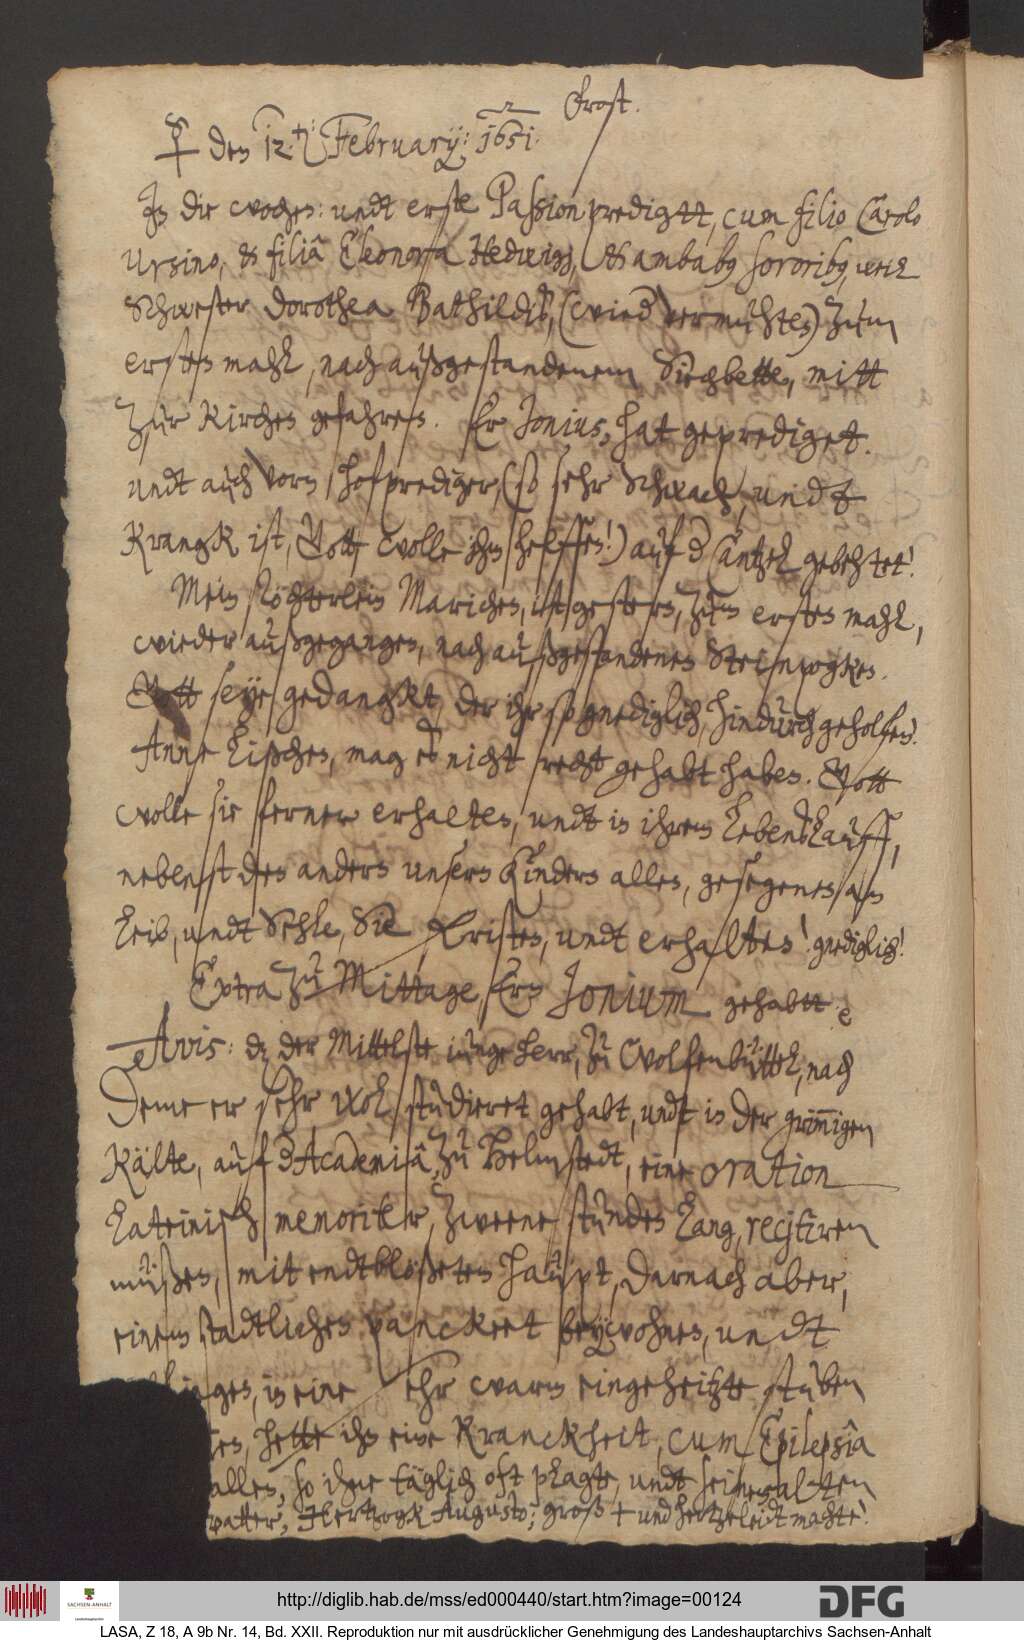 Frost.
☿ den 12. t: February: 1651.
In die wochen: undt erste Passionpredigtt, cum filio Carolo
Ursino, & filiâ Eleonora Hedwigg, & ambabus sororibus, weil
Schwester Dorothea Bathildis, (wieder vermuhten) zum
ersten mahl, nach außgestandenem Siechbette, mitt
zur Kirchen gefahren. Er Jonius, hat geprediget.
undt auch vorn hofprediger, (so sehr Schwach, undt
Kranck ist, Gott wolle ihm helffen!) auf der Cantzel gebehtet!
Mein Töchterlein Mariechen, ist gestern, zum ersten mahl,
wieder außgegangen, nach außgestandenen Steinpogken.
Gott seye gedanckt, der ihr so gnediglich, hindurch geholfen!
Anne Lißchen, mag es nicht recht gehabt haben. Gott
wolle sie ferner erhalten, undt in ihrem Lebenslauff,
nebenst den andern unsern Kindern allen, gesegenen an
Leib, undt Sehle, Sie fristen, undt erhalten! gnediglich!
Extra zu Mittage, Ern Jonium gehabtt.
Avis: dz der Mittelste iunge herr, zu Wolfenbüttel, nach
Deme er sehr wol studieret gehabt, undt in der grimmigen
Kälte, auf der Academiâ, zu Helmstedt, eine oration
Lateinisch memoriter, zweene stunden Lang, recitiren
müßen, mit endtblößetem haüpt, Darnach aber,
einem stadtlichen panckeet beywohnen, undt
in eine sehr warm eingeheitzte stuben
hette ihn eine Kranckheit, cum Epilepsiâ
allen, so ihne täglich oft plagte, undt seinem alten
vatter, Hertzogk Augusto; groß + und hertzeleidt machte!
http://diglib.hab.de/mss/ed000440/start.htm?image=00124
SACHSEN-ANHALT
DFG
LASA, Z 18, A 9b Nr. 14, Bd. XXII. Reproduktion nur mit ausdrücklicher Genehmigung des Landeshauptarchivs Sachsen-Anhalt